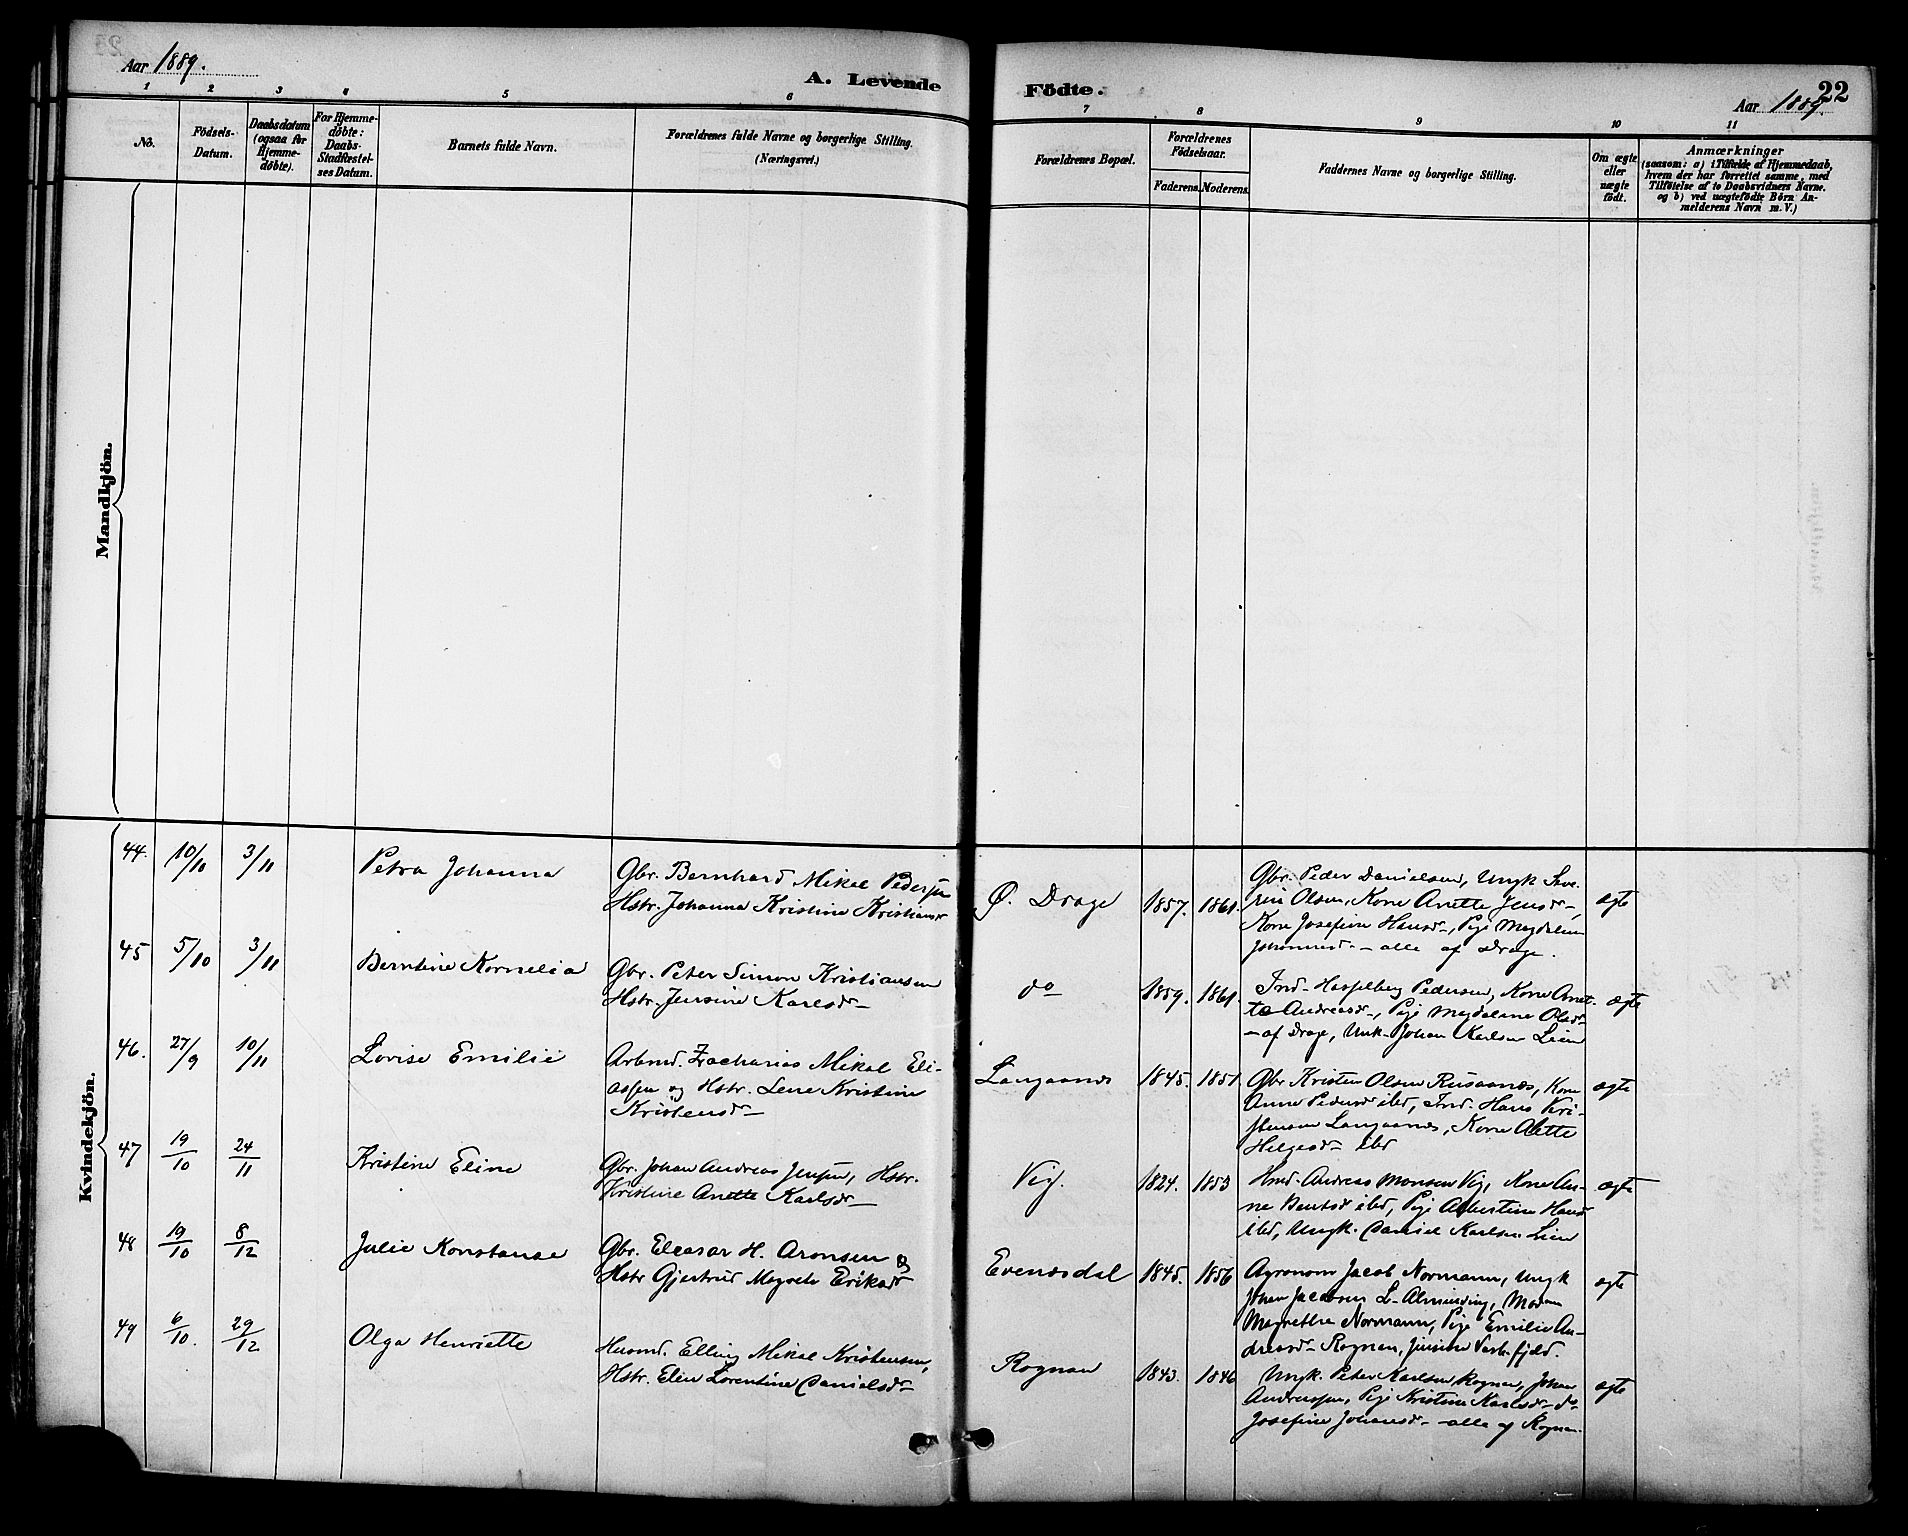 Aar 1889.
A. Levende
Födte.
22
Aar 1889.
1 2 3 4 5 6 7 8 9 10 11
No.
Födsels-
Datum.
Daabsdatum
(ogsaa for
Hjemme-
döbte).
For Hjemme-
döbte:
Daabs-
Stadfæstel-
ses Datum.
Barnets fulde Navn.
Forældrenes fulde Navne og borgerlige Stilling.
(Næringsvei.)
Forældrenes Bopæl.
Forældrenes
Födselsaar.
Faderens. Moderens.
Faddernes Navne og borgerlige Stilling.
Om ægte
eller
uægte
födt.
Anmærkninger
(saasom: a) i Tilfælde af Hjemmedaab,
hvem der har forrettet samme, med
Tilföielse af to Daabsvidners Navne.
og b) ved uægtefödte Börn An-
melderens Navn m.V.)
Mandkjön.
Kvindekjön.
44. 10/10 3/11 Petra Johanna
Gbr. Bernhard Mikal Pedersen
Hstr. Johanna Kristine Kristiansd
Ø. Drage 1857. 1861.
Gbr. Peder Danielsen, Ungk Seve-
rin Olsen, Kone Anette Jensd-,
Kone Josefine Hansd-, Pige Magdalene
Johannesd- - alle af Drage.
ægte
45 5/10 3/11 Berntine Kornelia
Gbr. Peter Simon Kristiansen
Hstr. Jensine Karlsd-
do 1859. 1861.
Ind. Hasselberg Pedersen, Kone Anet-
te Andreasd-, Pige Magdalene Olsd-
- af Drage, Unk- Johan Karlsen Lien
ægte
46. 27/9 10/11 Lovise Emilie
Arbmd. Zacharias Mikal Eli-
assen og Hstr. Lene Kristine
Kristensd-
Langaanes 1845. 1851.
Gbr Kristen Olsen Rusaanes, Kone
Anne Pedersd ibd, Ind. Hans Kri-
stensen Langaanes, Kone Alette
Helgesd- ibd
ægte
47 19/10 24/11 Kristine Eline
Gbr. Johan Andreas Jensen, Hstr.
Kristine Anette Karlsd-
Vig. 1824. 1853
Hmd- Andreas Monsen Vig, Kone An-
ne Bentsd ibd, Pige Albertine Hansd
ibd, Ungk. Daniel Karlsen Lien
ægte
48 19/10 8/12 Julie Konstanse
Gbr. Eleasar H. Aronsen og
Hstr Gjertrud Magrete Eriksd
Evenesdal 1845. 1856
Agronom Jacob Normann, Ungk
Johan Jacobsen L- Alminding, Madam
Magrethe Normann, Pige Emilie An-
dreasd- Rognan, Jensine Vasbotfjeld.
ægte
49 6/10. 29/12 Olga Henriette
Husmd. Elling Mikal Kristensen,
Hstr. Elen Lorentine Danielsd-
Rognan 1843. 1846
Ungk. Peter Karlsen Rognan, Johan
Andreassen, Pige Kristine Karlsd- do
Josefine Johansd- - alle af Rognan.
ægte